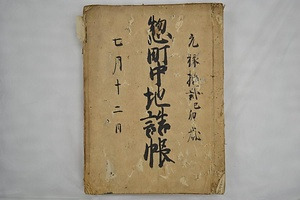 元禄拾弐己卯歳
惣町中地詰帳
七月十二日